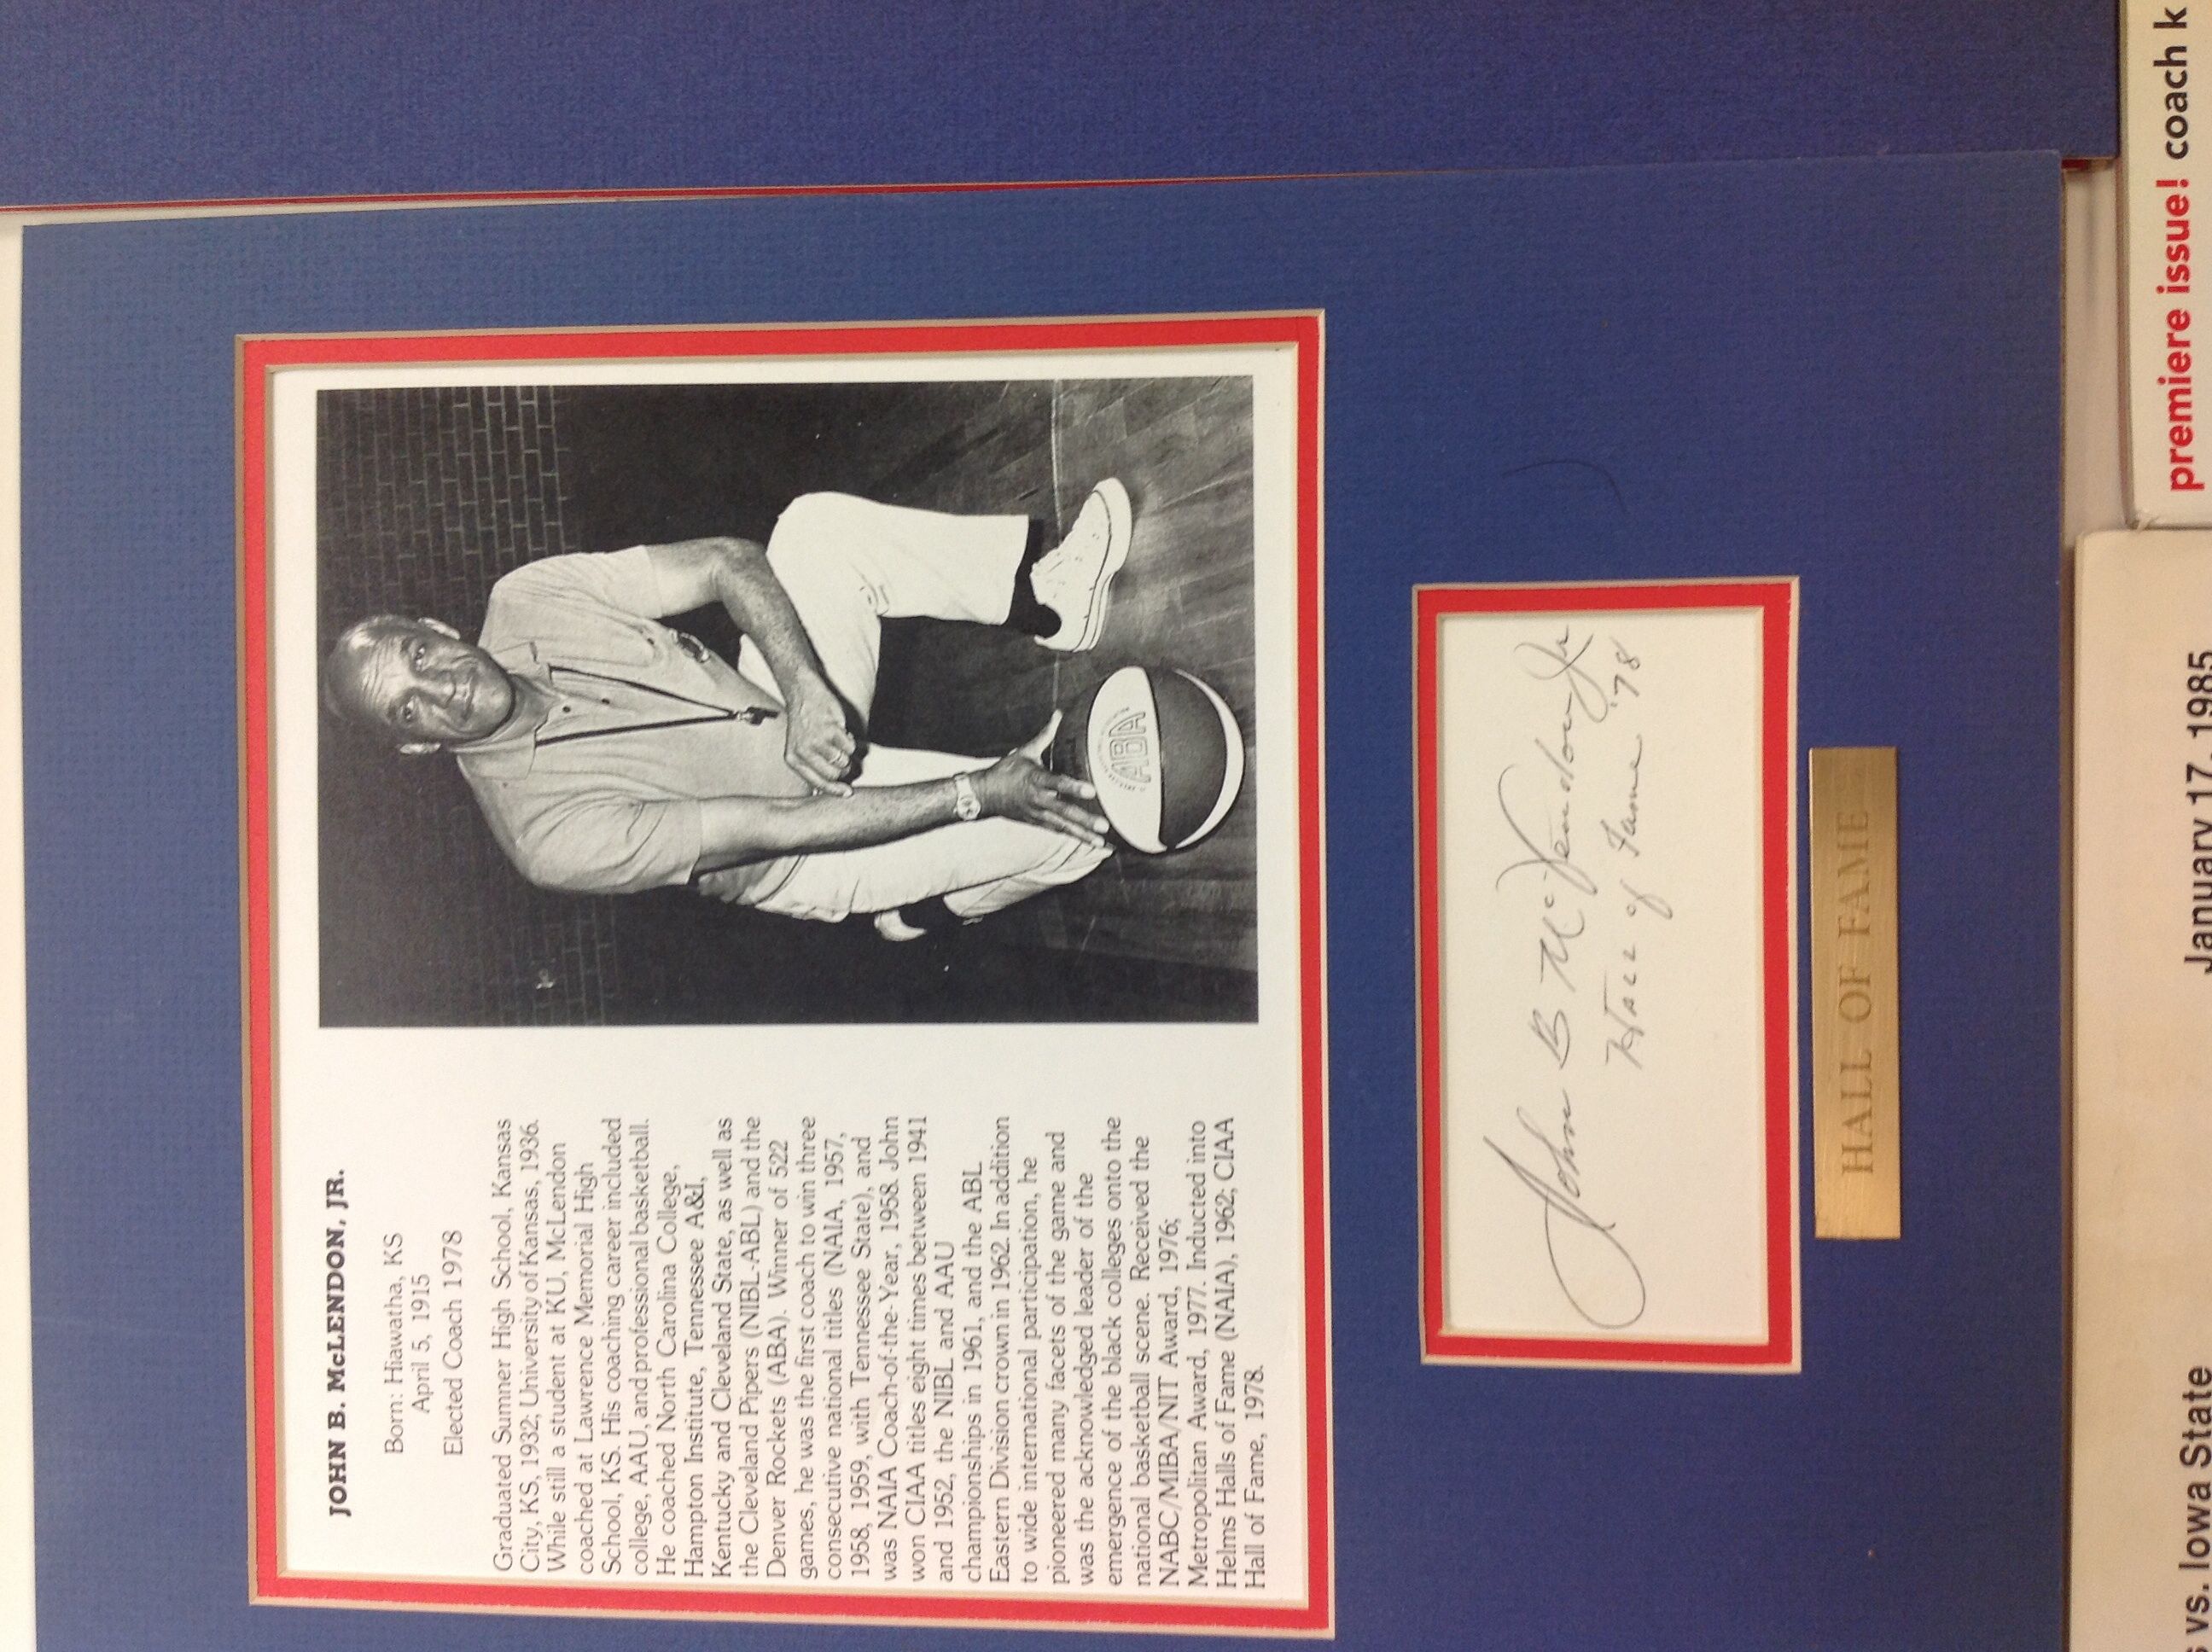 JOHN B. McLENDON, JR.
Born: Hiawatha, KS
April 5, 1915
Elected Coach 1978
Graduated Sumner High School, Kansas
City, KS, 1932; University of Kansas, 1936.
While still a student at KU, McLendon
coached at Lawrence Memorial High
School, KS. His coaching career included
college, AAU, and professional basketball.
He coached North Carolina College,
Hampton Institute, Tennessee A&I,
Kentucky and Cleveland State, as well as
the Cleveland Pipers (NIBL-ABL) and the
Denver Rockets (ABA). Winner of 522
games, he was the first coach to win three
consecutive national titles (NAIA, 1957,
1958, 1959, with Tennessee State), and
was NAIA Coach-of-the-Year, 1958. John
won CIAA titles eight times between 1941
and 1952, the NIBL and AAU
championships in 1961, and the ABL
Eastern Division crown in 1962. In addition
to wide international participation, he
pioneered many facets of the game and
was the acknowledged leader of the
emergence of the black colleges onto the
national basketball scene. Received the
NABC/MIBA/NIT Award, 1976;
Metropolitan Award, 1977. Inducted into
Helms Halls of Fame (NAIA), 1962; CIAA
Hall of Fame, 1978.
ABA
John B McLendon Jr
Hall of Fame '78
HALL OF FAME
vs. Iowa State
January 17, 1985
premiere issue! coach k